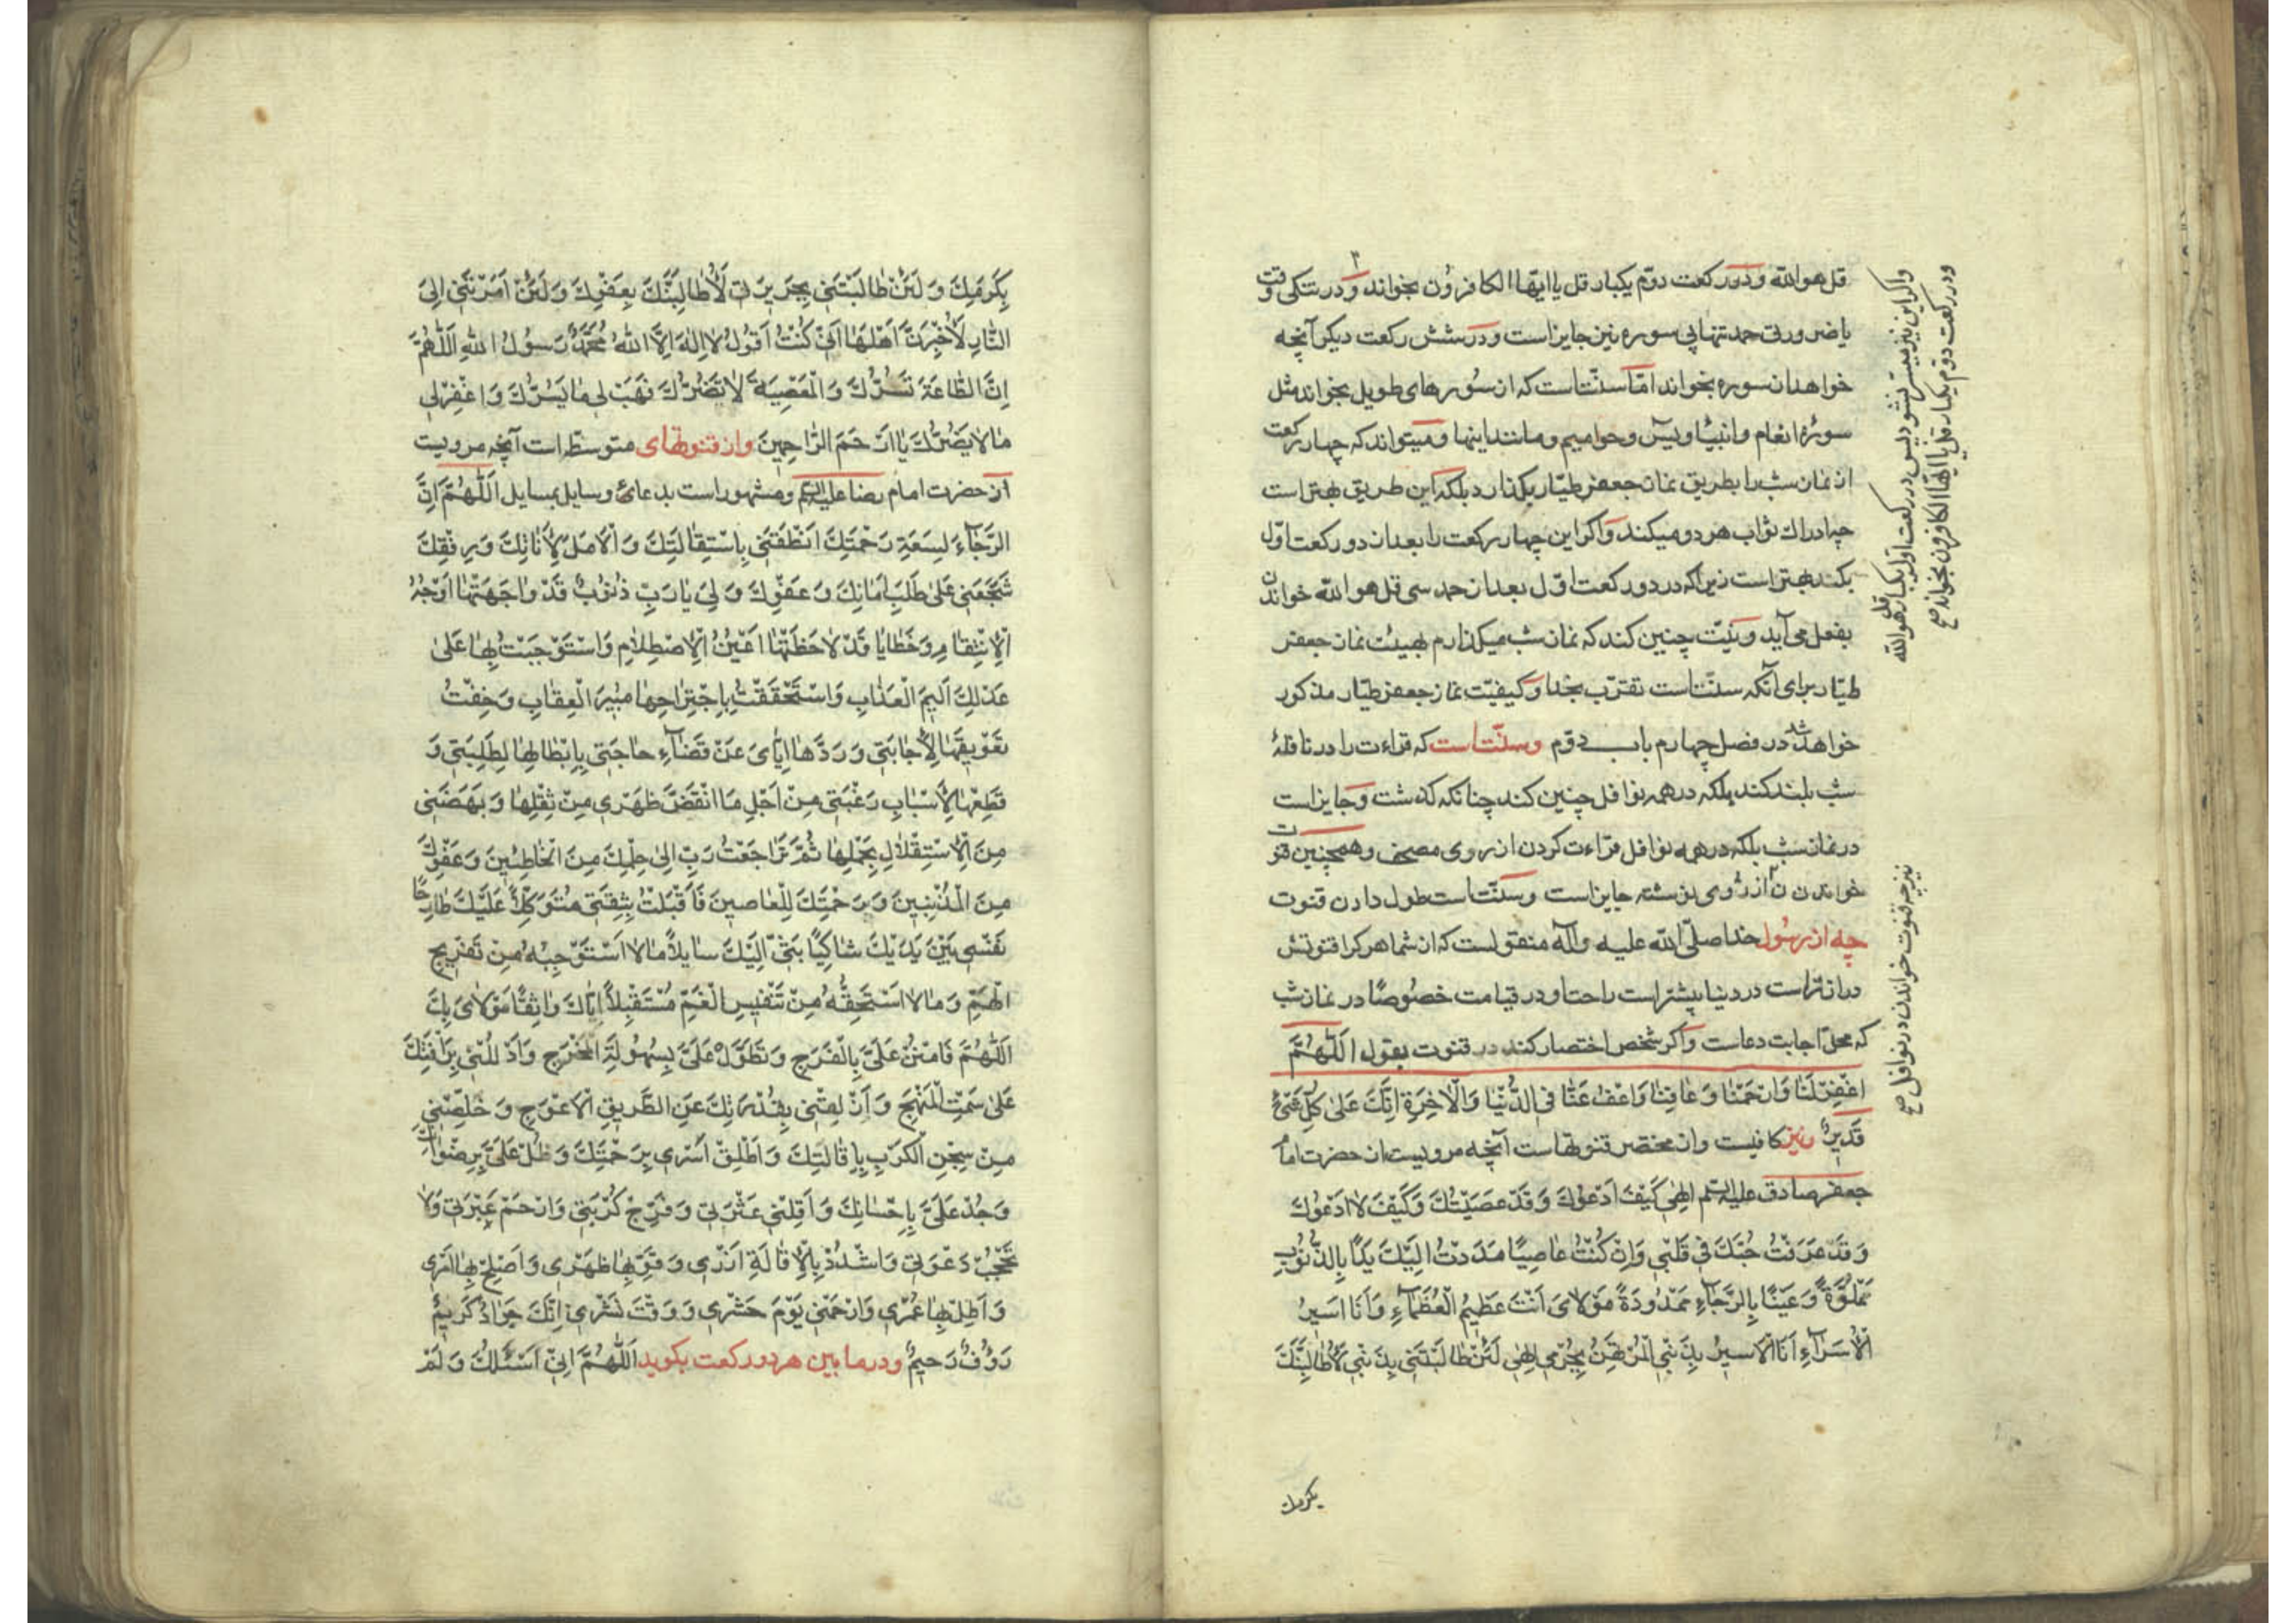 قل هو الله و در رکعت دوّم یکبار قل یا ایّها الکافرُون بخواند و در تنکی وقت
یا ضرورتی حمد تنها بی سوره نیز جایز است و در شش رکعت دیکر آنچه
خواهد از سوره بخواند امّا سنّت است که از سُورهای طویل بخواند مثل
سورهٔ انعام و انبیٓا و یٓس و حوامیم و مانند اینها و میتواند که چهار رکعت
از نماز شب را بطریق نماز جعفر طیّار بکذارد بلکه این طریق بهتر است
چه ادراك ثواب هر دو میکند و اکر این چهار رکعت را بعد از دو رکعت اوّل
بکند بهتر است زیرا که در دو رکعت اوّل بعد از حمد سی قل هو الله خواندن
بفعل می آید و نیّت چنین کند که نماز شب میکذارم بهیئت نماز جعفر
طیّار برای آنکه سنّت است تقرّب بخدا و کیفیّت نماز جعفر طیّار مذکور
خواهد شد در فصل چهارم باب دوّم و سنّت است که قراءت را در نافلهٔ
شب بلند کند بلکه در همه نوافل چنین کند چنانکه کذشت و جایز است
در نماز شب بلکه در همه نوافل قراءت کردن از روی مصحف و همچنین قنوت
خواندن از رُوی نوشته جایز است و سنّت است طول دادن قنوت
چه از رسُول خدا صلّی الله علیه و آله منقولست که از شما هر کرا قنوتش
دراز تر است در دنیا بیشتر است راحت او در قیامت خصُوصًا در نماز شب
که محلّ اجابت دعاست و اکر شخص اختصار کند در قنوت بقول اَللّٰهُمَّ
اغْفِرْ لَنٰا وَ ارْحَمْنٰا وَ عٰافِنٰا وَ اعْفُ عَنّٰا فِی الدُّنْیٰا وَ الْاٰخِرَةِ اِنَّكَ عَلٰی کُلِّ شَیْءٍ
قَدیرٌ نیز کافیست و از مختصر قنوتهاست آنچه مرویست از حضرت امام
جعفر صادق علیه السلم اِلٰهی کَیْفَ اَدْعُوكَ وَ قَدْ عَصَیْتُكَ وَ کَیْفَ لاٰ اَدْعُوكَ
وَ قَدْ عَرَفْتُ حُبَّكَ فی قَلْبی وَ اِنْ کُنْتُ عٰاصِیًا مَدَدْتُ اِلَیْكَ یَدًا بِالذُّنُوبِ
مَمْلُوَّةً وَ عَیْنًا بِالرَّجٰٓاءِ مَمْدُودَةً مَوْلاٰیَ اَنْتَ عَظیمُ الْعُظَمٰٓاءِ وَ اَنَا اَسیرُ
الْاُسَرٰٓاءِ اَنَا الْاَسیرُ بِذَنْبی الْمُرْتَهَنُ بِجُرْمی اِلٰهی لَئِنْ طٰالَبْتَنی بِذَنْبی لَاُطٰالِبَنَّكَ
بکرمك
و اکر این نیز میسّر نشود پس در رکعت اوّل یکبار قل هو الله
و در رکعت دوّم یکبار قل یا ایّها الکافرون بخواند صح
نیز چه قنوت خواندن در نوافل صح
بِکَرَمِكَ وَ لَئِنْ طٰالَبْتَنی بِجَریرَتی لَاُطٰالِبَنَّكَ بِعَفْوِكَ وَ لَئِنْ اَمَرْتَنی اِلَی
النّٰارِ لَاُخْبِرَنَّ اَهْلَهٰا اَنّی کُنْتُ اَقُولُ لاٰ اِلٰهَ اِلَّا اللهُ مُحَمَّدٌ رَسُولُ اللهِ اَللّٰهُمَّ
اِنَّ الطّٰاعَةَ تَسُرُّكَ وَ الْمَعْصِیَةَ لاٰ تَضُرُّكَ فَهَبْ لی مٰا یَسُرُّكَ وَ اغْفِرْ لی
مٰا لاٰ یَضُرُّكَ یٰا اَرْحَمَ الرّٰاحِمینَ و از قنوتهای متوسّط است آنچه مرویست
از حضرت امام رضا علیه السلم و مشهور است بدعای وسایل بمسایل اَللّٰهُمَّ اِنَّ
الرَّجٰٓاءَ لِسَعَةِ رَحْمَتِكَ اَنْطَقَنی بِاسْتِقٰالَتِكَ وَ الْاَمَلَ لِاَنٰاتِكَ وَ رِفْقِكَ
شَجَّعَنی عَلٰی طَلَبِ اَمٰانِكَ وَ عَفْوِكَ وَ لی یٰا رَبِّ ذُنُوبٌ قَدْ وٰاجَهَتْهٰا اَوْجُهُ
الْاِنْتِقٰامِ وَ خَطٰایٰا قَدْ لاٰحَظَتْهٰا اَعْیُنُ الْاِصْطِلاٰمِ وَ اسْتَوْجَبْتُ بِهٰا عَلٰی
عَدْلِكَ اَلیمَ الْعَذٰابِ وَ اسْتَحْقَقْتُ بِاجْتِرٰاحِهٰا مُبیرَ الْعِقٰابِ وَ خِفْتُ
تَعْویقَهٰا لِاِجٰابَتی وَ رَدَّهٰا اِیّٰایَ عَنْ قَضٰٓاءِ حٰاجَتی بِاِبْطٰالِهٰا لِطَلِبَتی وَ
قَطْعَهٰا لِاَسْبٰابِ رَغْبَتی مِنْ اَجْلِ مٰا اَنْقَضَ ظَهْری مِنْ ثِقْلِهٰا وَ بَهَضَنی
مِنَ الْاِسْتِقْلاٰلِ بِحَمْلِهٰا ثُمَّ تَرٰاجَعْتُ رَبِّ اِلٰی حِلْمِكَ مِنَ الْخٰاطِئینَ وَ عَفْوِكَ
مِنَ الْمُذْنِبینَ وَ رَحْمَتِكَ لِلْعٰاصینَ فَاَقْبَلْتُ بِثِقَتی مُتَوَکِّلاً عَلَیْكَ طٰارِحًا
نَفْسی بَیْنَ یَدَیْكَ شٰاکِیًا بَثّی اِلَیْكَ سٰایلاً مٰا لاٰ اَسْتَوْجِبُهُ مِنْ تَفْریجِ
الْهَمِّ وَ مٰا لاٰ اَسْتَحِقُّهُ مِنْ تَنْفیسِ الْغَمِّ مُسْتَقْبِلاً اِیّٰاكَ وٰاثِقًا مَوْلاٰیَ بِكَ
اَللّٰهُمَّ فَامْنُنْ عَلَیَّ بِالْفَرَجِ وَ تَطَوَّلْ عَلَیَّ بِسُهُولَةِ الْمَخْرَجِ وَ ادْلُلْنی بِرَاْفَتِكَ
عَلٰی سَمْتِ الْمَنْهَجِ وَ اَزِلْقَتْنی بِقُدْرَتِكَ عَنِ الطَّریقِ الْاَعْوَجِ وَ خَلِّصْنی
مِنْ سِجْنِ الْکَرْبِ بِاِقٰالَتِكَ وَ اَطْلِقْ اَسْری بِرَحْمَتِكَ وَ طُلْ عَلَیَّ بِرِضْوٰانِكَ
وَ جُدْ عَلَیَّ بِاِحْسٰانِكَ وَ اَقِلْنی عَثْرَتی وَ فَرِّجْ کُرْبَتی وَ ارْحَمْ عَبْرَتی وَ لاٰ
تَحْجُبْ دَعْوَتی وَ اشْدُدْ بِالْاِقٰالَةِ اَزْری وَ قَوِّ بِهٰا ظَهْری وَ اَصْلِحْ بِهٰا اَمْری
وَ اَطِلْ بِهٰا عُمْری وَ ارْحَمْنی یَوْمَ حَشْری وَ وَقْتَ نَشْری اِنَّكَ جَوٰادٌ کَریمٌ
رَؤُفٌ رَحیمٌ و در ما بین هر دو رکعت بکوید اَللّٰهُمَّ اِنّی اَسْئَلُكَ وَ لَمْ